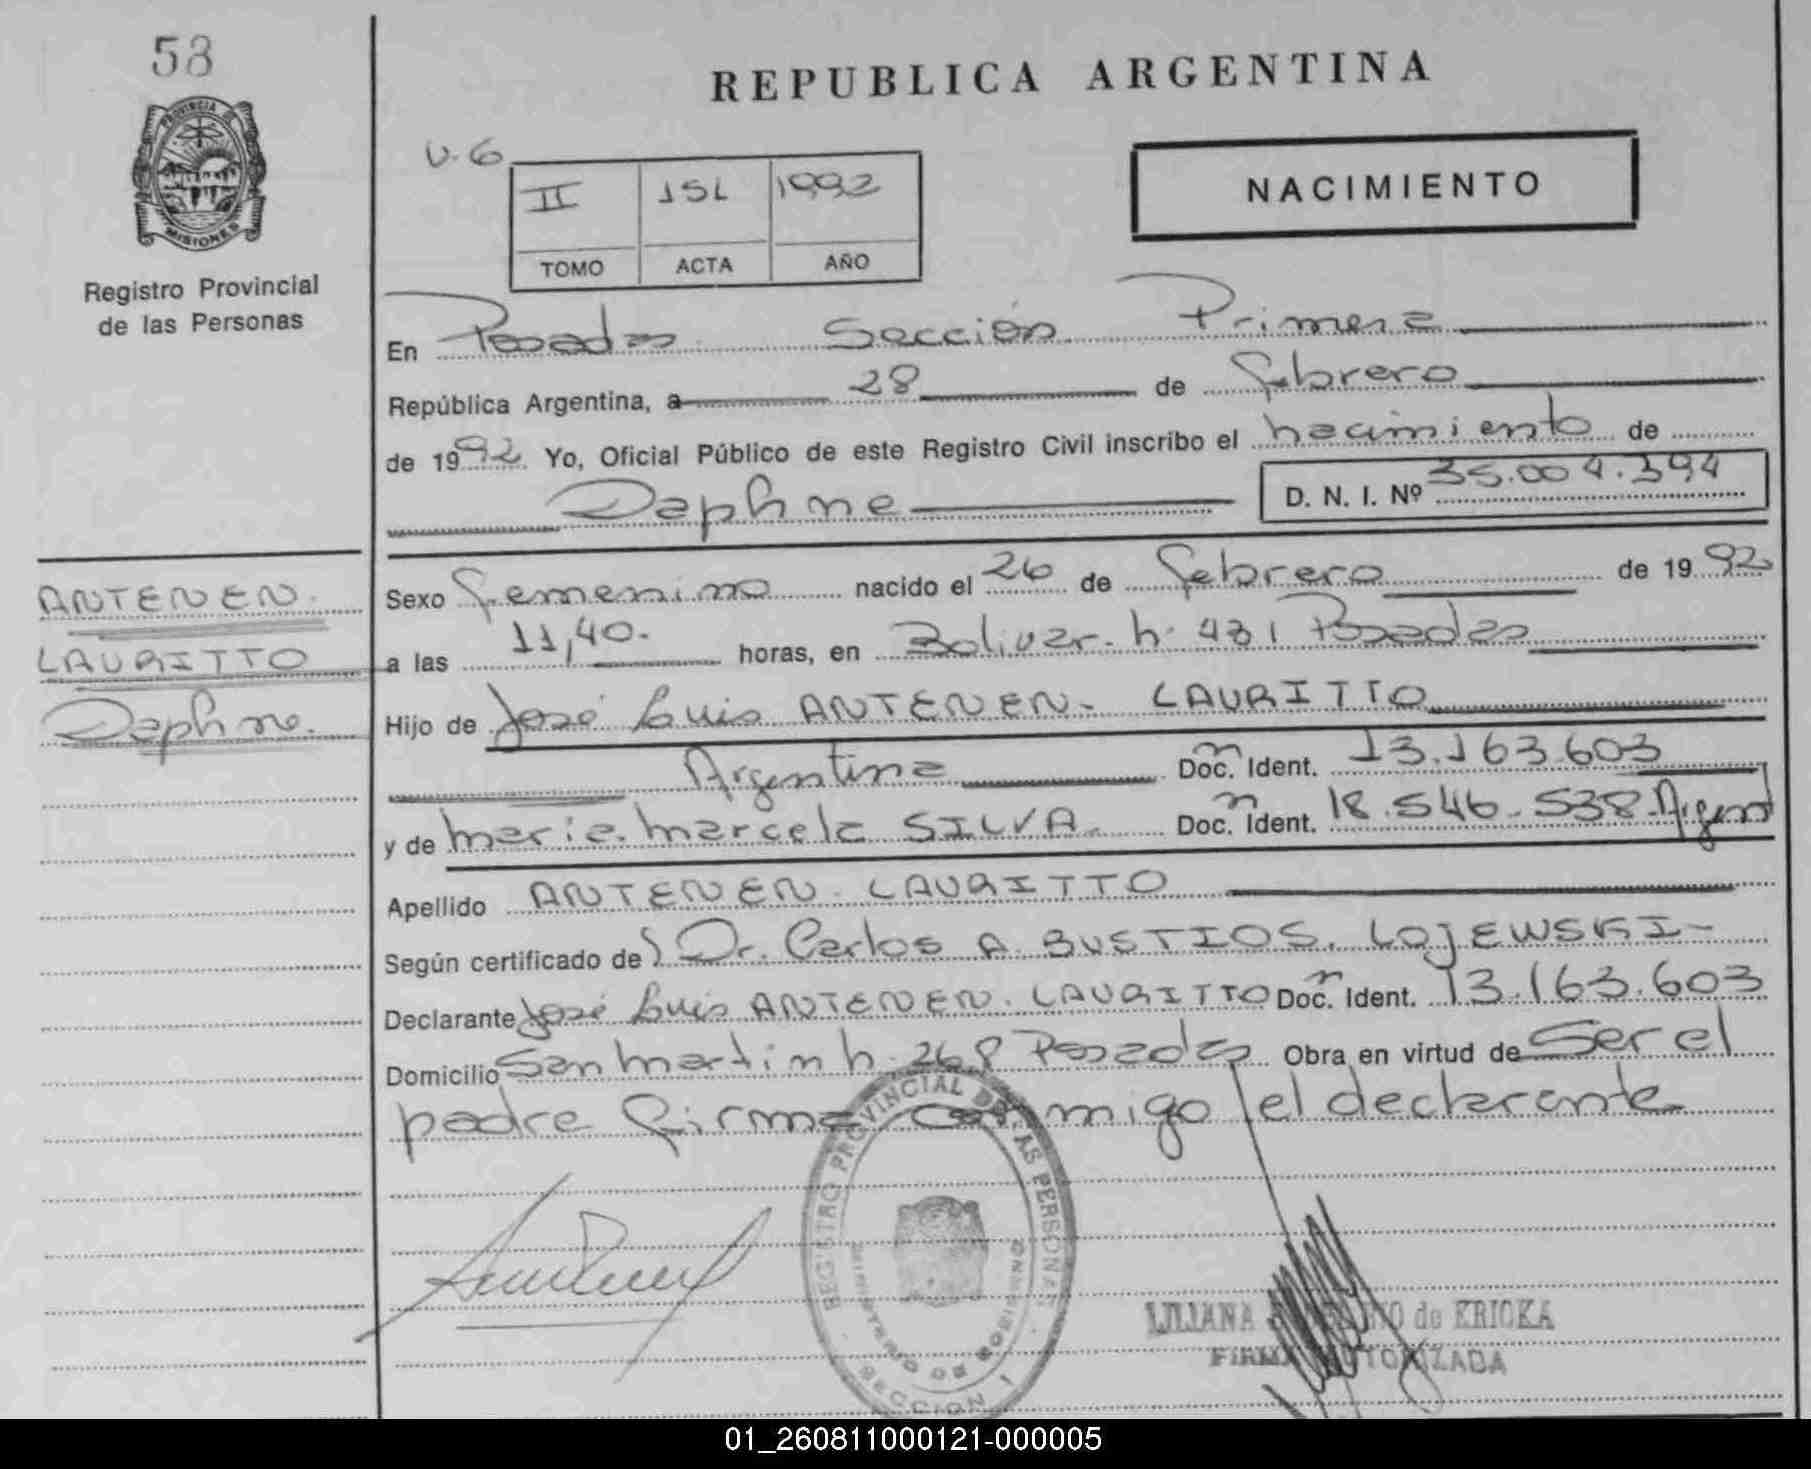 58
REPUBLICA ARGENTINA
PROVINCIA DE
MISIONES
Registro Provincial
de las Personas
V.6
II 151 1992
TOMO ACTA AÑO
NACIMIENTO
En Posadas Sección Primera
República Argentina, a 28 de febrero
de 1992 Yo, Oficial Público de este Registro Civil inscribo el nacimiento de
Daphne D. N. I. Nº 35.004.394
ANTENEN.
LAURITTO
Daphne.
Sexo femenino nacido el 26 de febrero de 1992
a las 11,40. horas, en Bolivar. h. 431 Posadas
Hijo de José Luis ANTENEN- LAURITTO
Argentina Doc. n Ident. 13.163.603
y de maria marcela SILVA. Doc. n Ident. 18.546.538 Argent
Apellido ANTENEN. LAURITTO
Según certificado del Dr. Carlos A. BUSTIOS. LOJEWSKI-
Declarante José Luis ANTENEN. LAURITTO Doc. n Ident. 13.163.603
Domicilio San martin h. 268 Posadas Obra en virtud de Ser el
padre firma conmigo el declarante
REGISTRO PROVINCIAL DE LAS PERSONAS
MINISTERIO DE GOBIERNO
SECCION 1
LILIANA de KRICKA
FIRMA AUTORIZADA
01_260811000121-000005